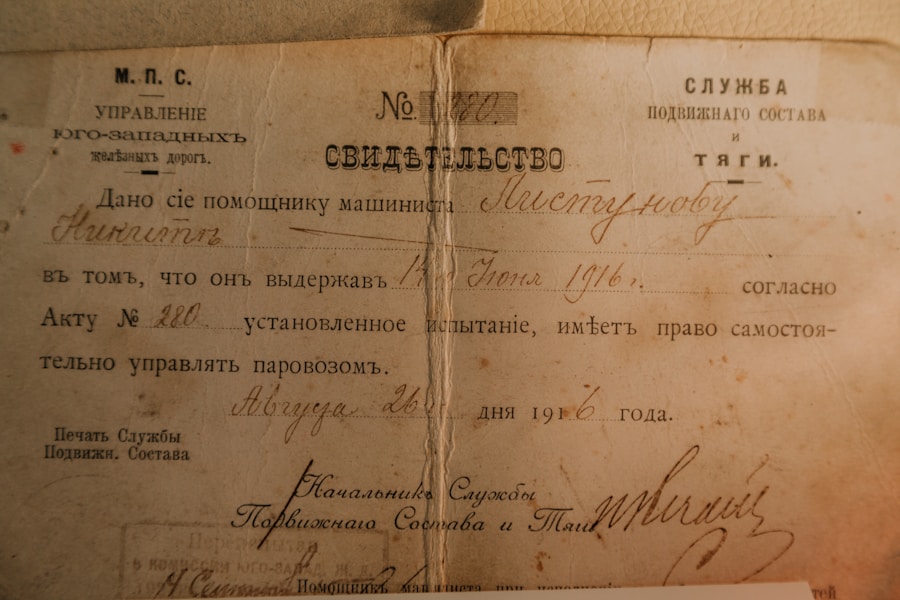 М. П. С.
УПРАВЛЕНІЕ
ЮГО-ЗАПАДНЫХЪ
желѣзныхъ дорогъ.
СЛУЖБА
ПОДВИЖНАГО СОСТАВА
и
ТЯГИ.
№ 280.
СВИДѢТЕЛЬСТВО
Дано сіе помощнику машиниста Пистунову
Никитѣ
въ томъ, что онъ выдержавъ Іюня 1916 г. согласно
Акту № 280. установленное испытаніе, имѣетъ право самостоя-
тельно управлять паровозомъ.
Августа 26 дня 1916 года.
Печать Службы
Подвижн. Состава
Начальникъ Службы
Подвижнаго Состава и Тяги
В КОМИССИИ ЮГО-ЗАПАД. Ж. Д.
Помощникъ машиниста при исполненіи